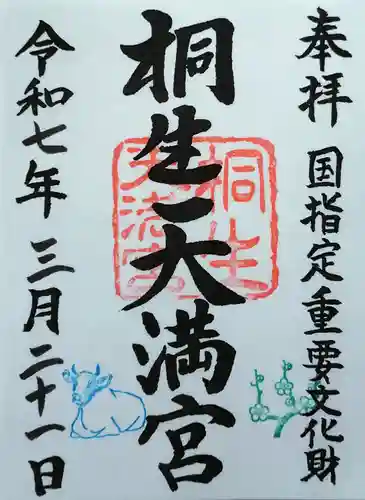 奉拝 国指定重要文化財
桐生天満宮
令和七年 三月二十一日
桐生
天満宮